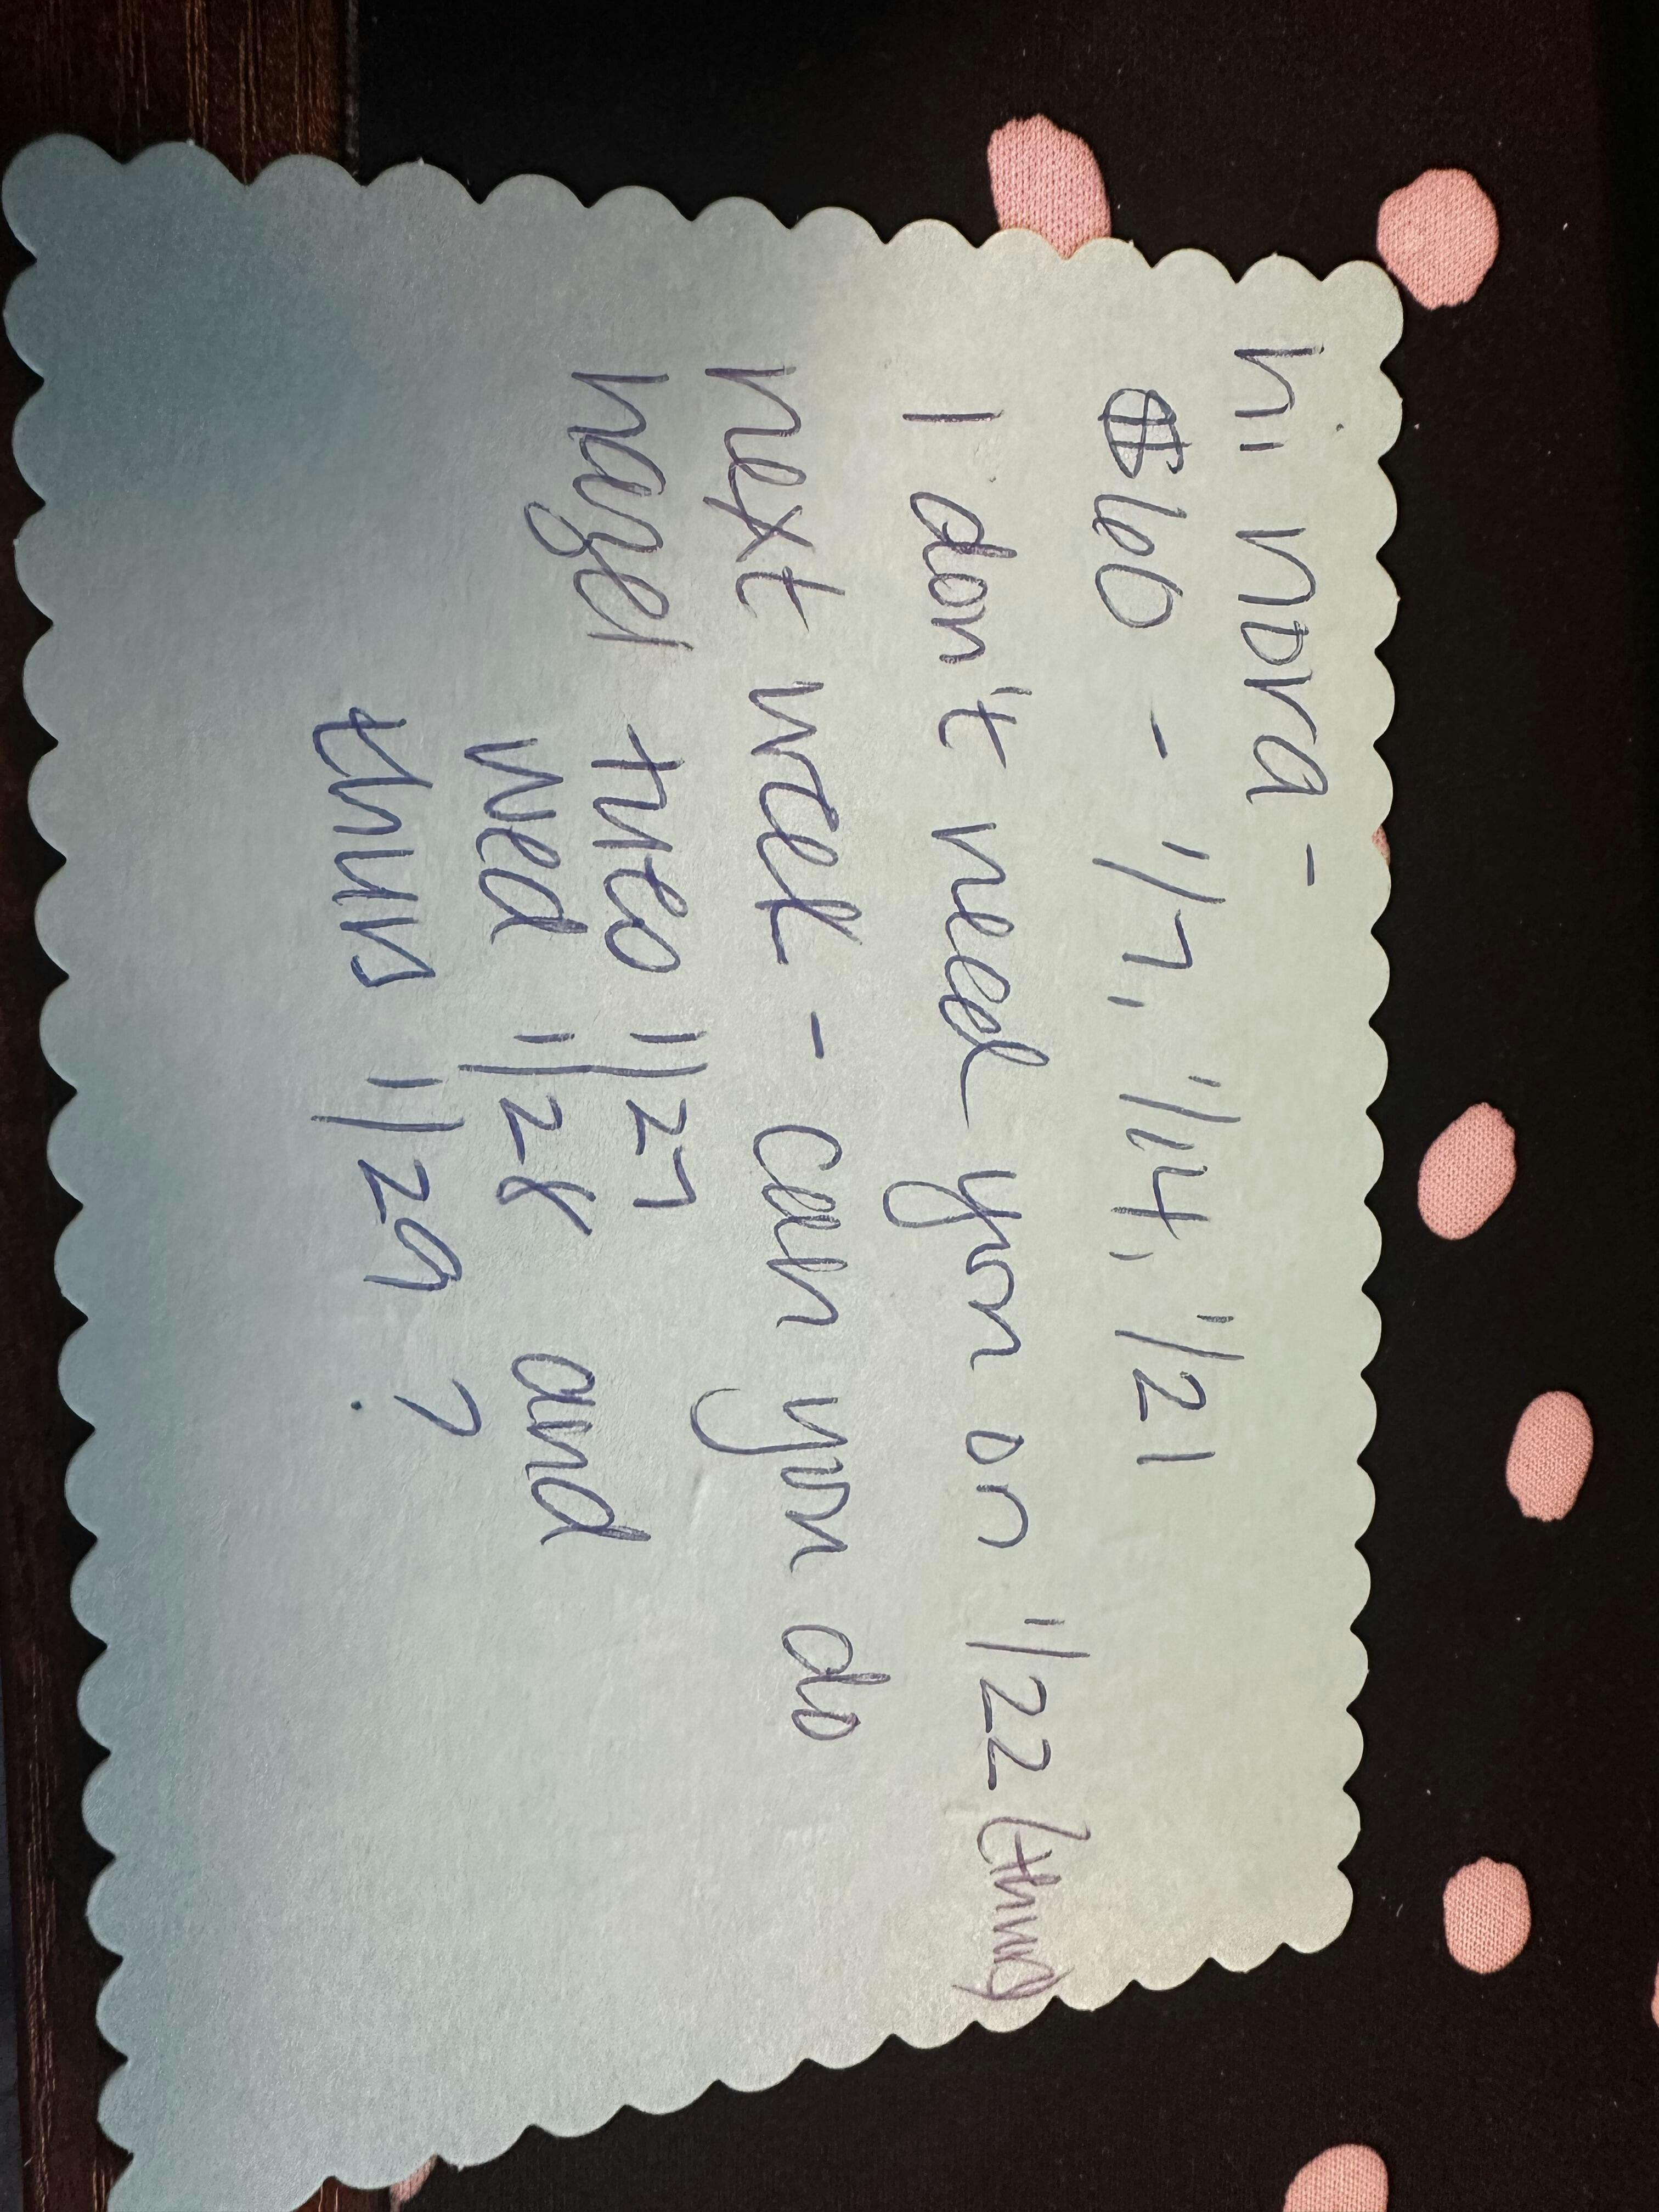 hi nora -
$60 - 1/7, 1/14, 1/21
I don't need you on 1/22 (thurs)
next week - can you do
hazel tues 1/27
wed 1/28 and
thurs 1/29 ?